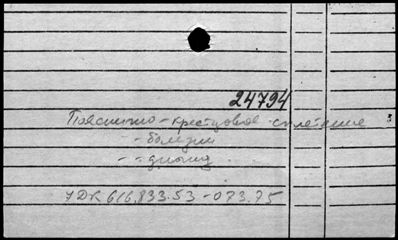 24794
Пояснично-крестцовое сплетение
- - болезни
- - диагн.
УДК 616.833.53-073.75